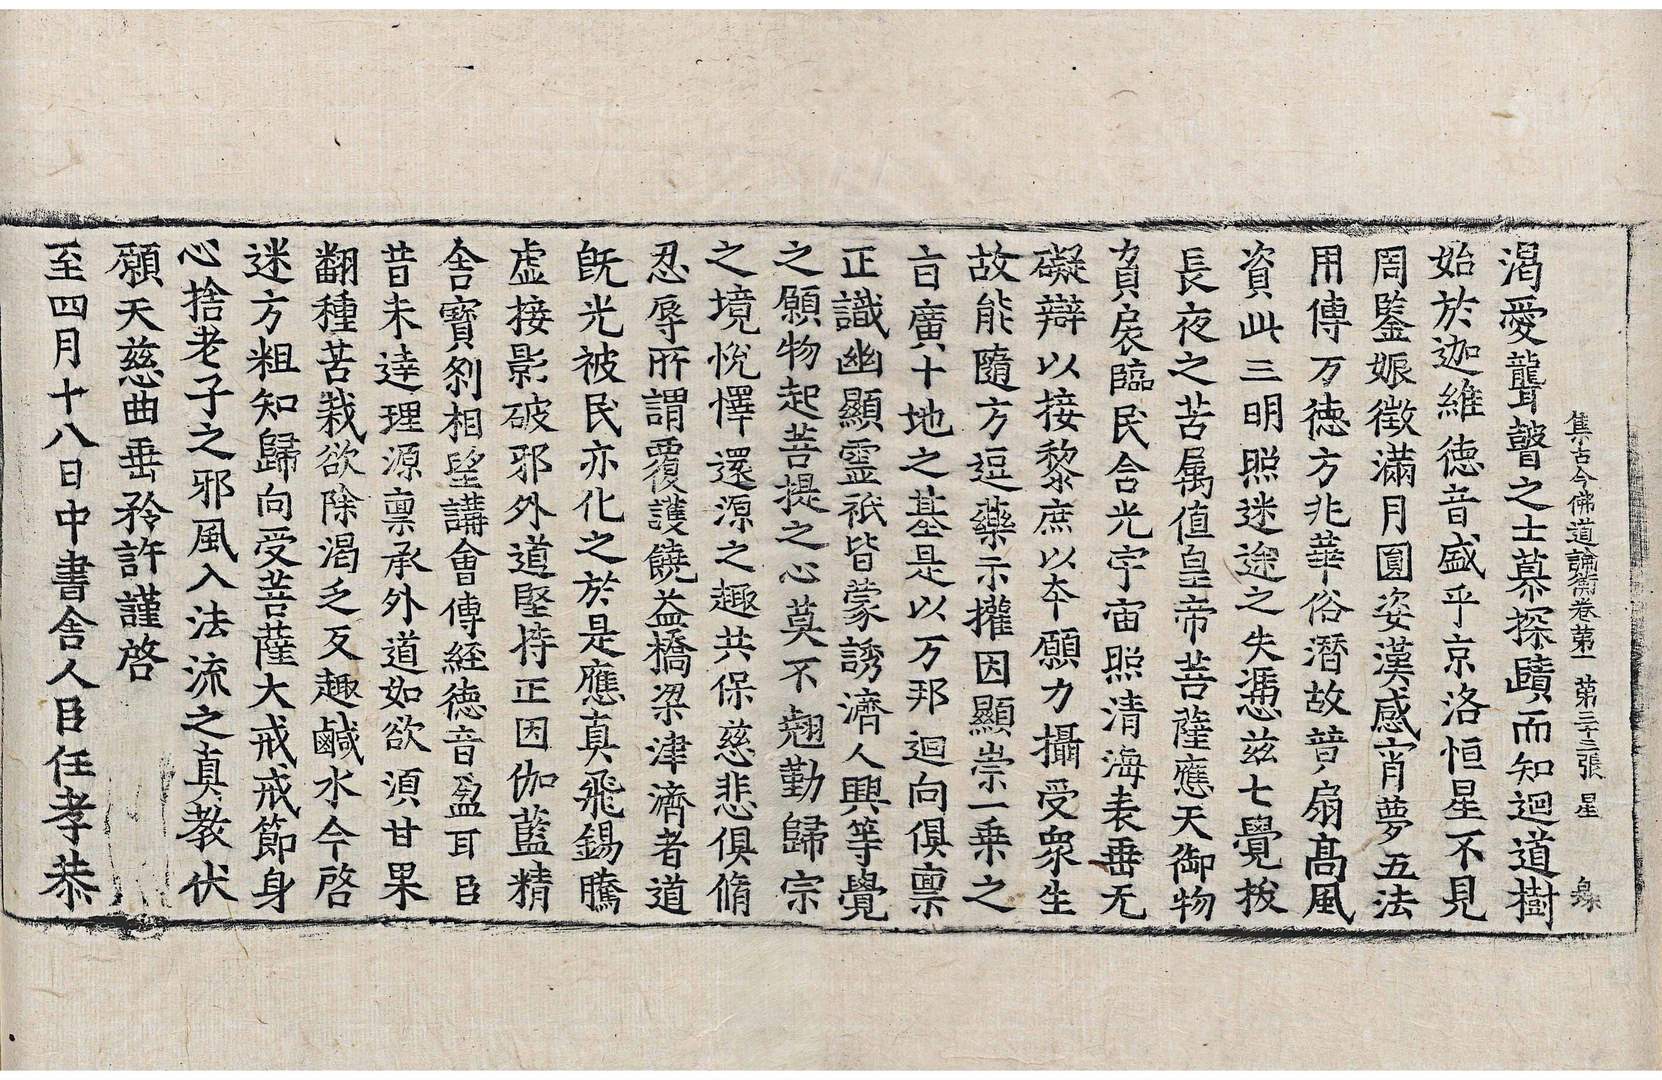 集古今佛道論衡卷第一 第三十三張 星
渇愛聾瞽之士慕探賾而知迴道樹
始於迦維德音盛乎京洛恒星不見
周鑒娠徵滿月圓姿漢感宵夢五法
用傳万德方兆華俗潛故普扇髙風
資此三明照迷途之失憑兹七覺拔
長夜之苦属值皇帝菩薩應天御物
負扆臨民含光宇宙照清海表垂无
礙辯以接黎庶以夲願力攝受衆生
故能隨方逗藥示權因顯崇一乗之
㫖廣十地之基是以万邦迴向俱禀
正識幽顯靈祇皆蒙誘濟人興等覺
之願物起菩提之心莫不翹勤歸宗
之境恱懌還源之趣共保慈悲俱脩
忍辱所謂覆護饒益橋梁津濟者道
旣光被民亦化之於是應真飛錫騰
虚接影破邪外道堅持正因伽藍精
舍寶剎相望講會傳經德音盈耳臣
昔未達理源禀承外道如欲須甘果
翻種苦栽欲除渇乏反趣鹹水今啓
迷方粗知歸向受菩薩大戒戒節身
心捨老子之邪風入法流之真教伏
願天慈曲垂矜許謹啓
至四月十八日中書舎人臣任孝恭